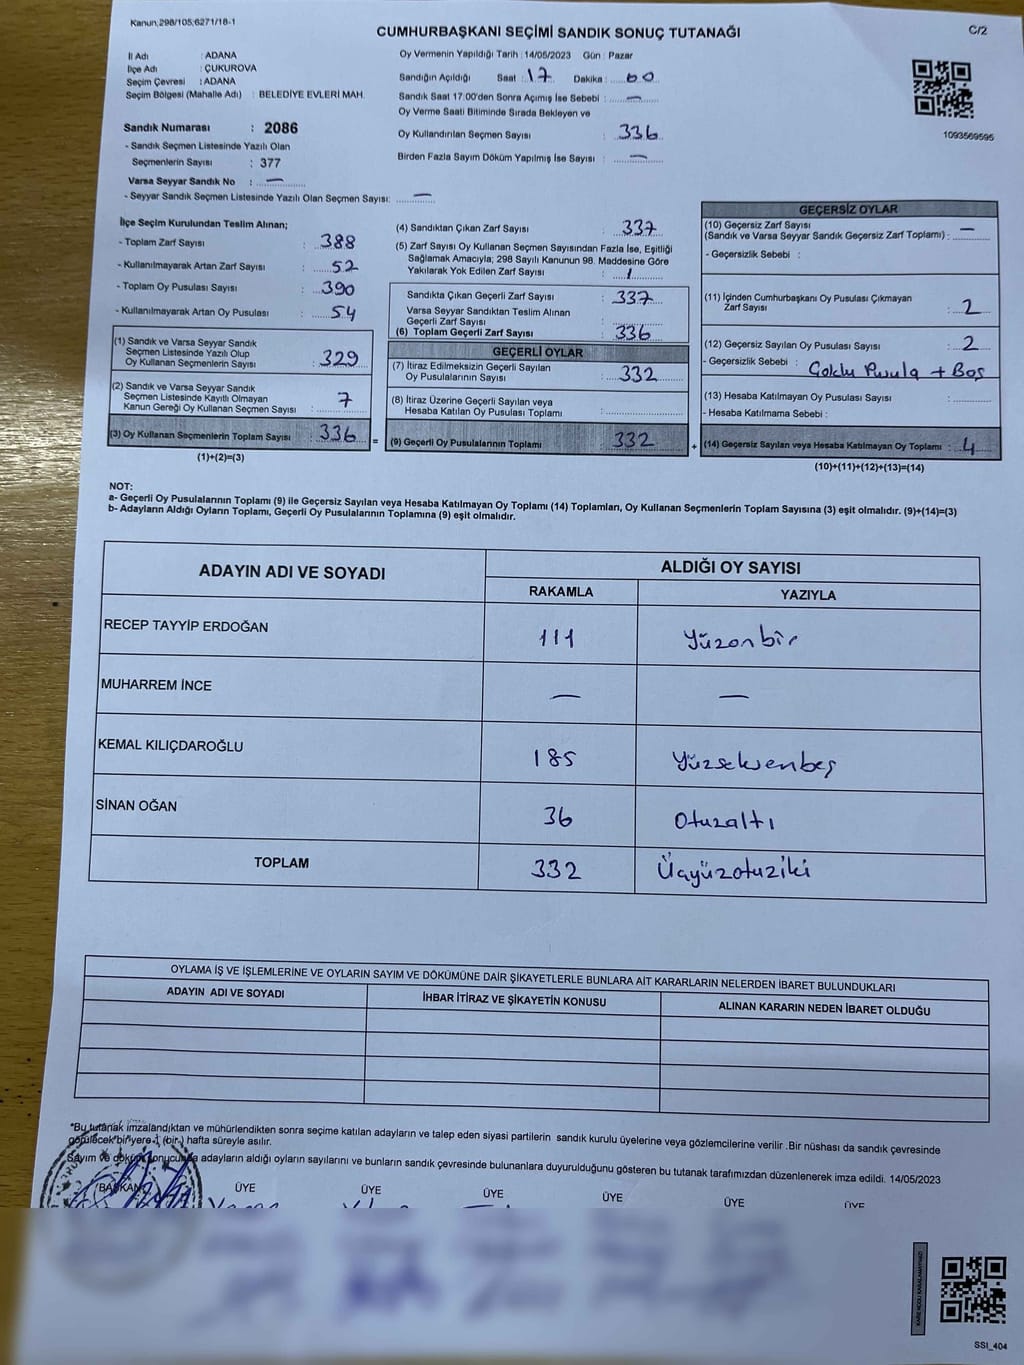 Kanun;298/105;6271/18-1
C/2
CUMHURBAŞKANI SEÇİMİ SANDIK SONUÇ TUTANAĞI
İl Adı : ADANA
İlçe Adı : ÇUKUROVA
Seçim Çevresi : ADANA
Seçim Bölgesi (Mahalle Adı) : BELEDİYE EVLERİ MAH.
Oy Vermenin Yapıldığı Tarih : 14/05/2023 Gün : Pazar
Sandığın Açıldığı Saat : 17 Dakika : 00
Sandık Saat 17:00'den Sonra Açımış İse Sebebi : —
Oy Verme Saati Bitiminde Sırada Bekleyen ve
Oy Kullandırılan Seçmen Sayısı : 336
Birden Fazla Sayım Döküm Yapılmış İse Sayısı : —
1093569595
Sandık Numarası : 2086
- Sandık Seçmen Listesinde Yazılı Olan
Seçmenlerin Sayısı : 377
Varsa Seyyar Sandık No : —
- Seyyar Sandık Seçmen Listesinde Yazılı Olan Seçmen Sayısı: —
İlçe Seçim Kurulundan Teslim Alınan;
- Toplam Zarf Sayısı : 388
- Kullanılmayarak Artan Zarf Sayısı : 52
- Toplam Oy Pusulası Sayısı : 390
- Kullanılmayarak Artan Oy Pusulası : 54
(1) Sandık ve Varsa Seyyar Sandık
Seçmen Listesinde Yazılı Olup
Oy Kullanan Seçmenlerin Sayısı : 329
(2) Sandık ve Varsa Seyyar Sandık
Seçmen Listesinde Kayıtlı Olmayan
Kanun Gereği Oy Kullanan Seçmen Sayısı : 7
(3) Oy Kullanan Seçmenlerin Toplam Sayısı : 336 =
(1)+(2)=(3)
(4) Sandıktan Çıkan Zarf Sayısı : 337
(5) Zarf Sayısı Oy Kullanan Seçmen Sayısından Fazla İse, Eşitliği
Sağlamak Amacıyla; 298 Sayılı Kanunun 98. Maddesine Göre
Yakılarak Yok Edilen Zarf Sayısı : 1
Sandıkta Çıkan Geçerli Zarf Sayısı : 337
Varsa Seyyar Sandıktan Teslim Alınan
Geçerli Zarf Sayısı :
(6) Toplam Geçerli Zarf Sayısı : 336
GEÇERLİ OYLAR
(7) İtiraz Edilmeksizin Geçerli Sayılan
Oy Pusulalarının Sayısı : 332
(8) İtiraz Üzerine Geçerli Sayılan veya
Hesaba Katılan Oy Pusulası Toplamı :
(9) Geçerli Oy Pusulalarının Toplamı 332 +
GEÇERSİZ OYLAR
(10) Geçersiz Zarf Sayısı
(Sandık ve Varsa Seyyar Sandık Geçersiz Zarf Toplamı) : —
- Geçersizlik Sebebi :
(11) İçinden Cumhurbaşkanı Oy Pusulası Çıkmayan
Zarf Sayısı : 2
(12) Geçersiz Sayılan Oy Pusulası Sayısı : 2
- Geçersizlik Sebebi : Çoklu Pusula + Boş
(13) Hesaba Katılmayan Oy Pusulası Sayısı :
- Hesaba Katılmama Sebebi :
(14) Geçersiz Sayılan veya Hesaba Katılmayan Oy Toplamı : 4
(10)+(11)+(12)+(13)=(14)
NOT:
a- Geçerli Oy Pusulalarının Toplamı (9) ile Geçersiz Sayılan veya Hesaba Katılmayan Oy Toplamı (14) Toplamları, Oy Kullanan Seçmenlerin Toplam Sayısına (3) eşit olmalıdır. (9)+(14)=(3)
b- Adayların Aldığı Oyların Toplamı, Geçerli Oy Pusulalarının Toplamına (9) eşit olmalıdır.
ADAYIN ADI VE SOYADI
ALDIĞI OY SAYISI
RAKAMLA YAZIYLA
RECEP TAYYİP ERDOĞAN 111 Yüzonbir
MUHARREM İNCE — —
KEMAL KILIÇDAROĞLU 185 Yüzseksenbeş
SİNAN OĞAN 36 Otuzaltı
TOPLAM 332 Üçyüzotuziki
OYLAMA İŞ VE İŞLEMLERİNE VE OYLARIN SAYIM VE DÖKÜMÜNE DAİR ŞİKAYETLERLE BUNLARA AİT KARARLARIN NELERDEN İBARET BULUNDUKLARI
ADAYIN ADI VE SOYADI İHBAR İTİRAZ VE ŞİKAYETİN KONUSU ALINAN KARARIN NEDEN İBARET OLDUĞU
*Bu tutanak imzalandıktan ve mühürlendikten sonra seçime katılan adayların ve talep eden siyasi partilerin sandık kurulu üyelerine veya gözlemcilerine verilir .Bir nüshası da sandık çevresinde
görülecek bir yere 1 (bir) hafta süreyle asılır.
Sayım ve döküm sonucunda adayların aldığı oyların sayılarını ve bunların sandık çevresinde bulunanlara duyurulduğunu gösteren bu tutanak tarafımızdan düzenlenerek imza edildi. 14/05/2023
BAŞKAN ÜYE ÜYE ÜYE ÜYE ÜYE ÜYE
SSI_404